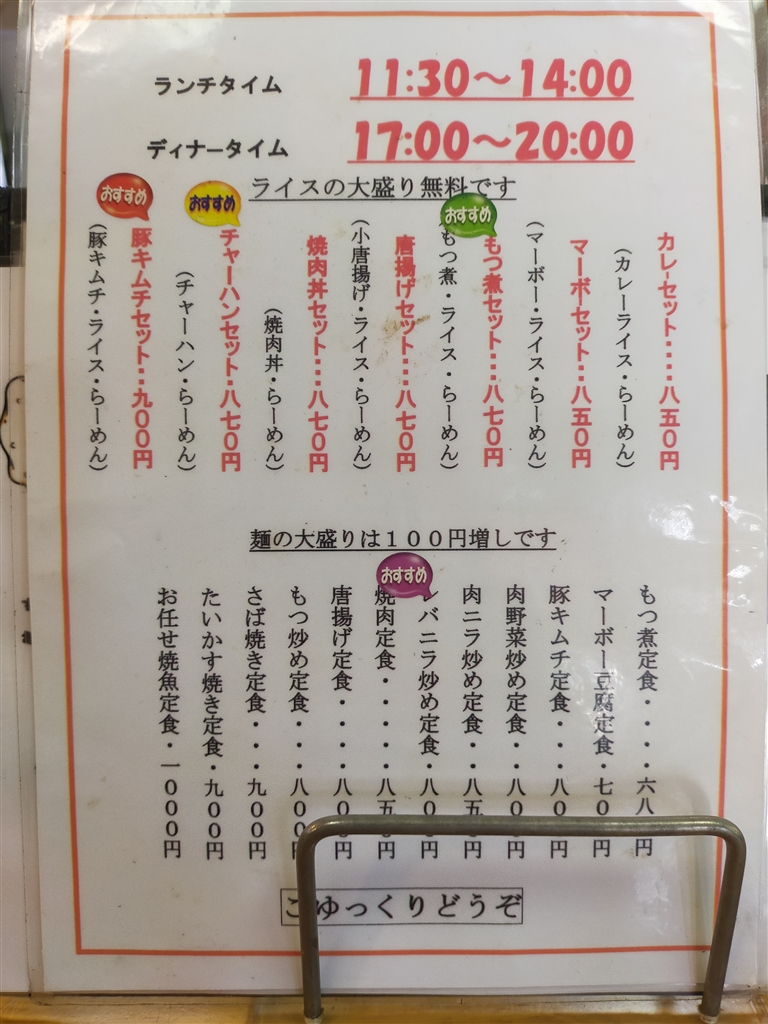 ランチタイム 11:30～14:00
ディナータイム 17:00～20:00
ライスの大盛り無料です
カレーセット・・・・八五０円
(カレーライス・らーめん)
マーボーセット・・八五０円
(マーボー・ライス・らーめん)
おすすめ
もつ煮セット・・・八七０円
もつ煮・ライス・らーめん)
唐揚げセット・・・八七０円
(小唐揚げ・ライス・らーめん)
焼肉丼セット・・・八七０円
(焼肉丼・らーめん)
おすすめ
チャーハンセット・八七０円
(チャーハン・らーめん)
おすすめ
豚キムチセット・・九００円
(豚キムチ・ライス・らーめん)
麺の大盛りは１００円増しです
もつ煮定食・・・・六八 円
マーボー豆腐定食・七０ 円
豚キムチ定食・・・八０ 円
肉野菜炒め定食・・八０ 円
肉ニラ炒め定食・・八五 円
バニラ炒め定食・八０ 円
おすすめ
焼肉定食・・・・・八五 円
唐揚げ定食・・・・八０ 円
もつ炒め定食・・・八００円
さば焼き定食・・・九００円
たいかす焼き定食・九００円
お任せ焼魚定食・一０００円
ごゆっくりどうぞ